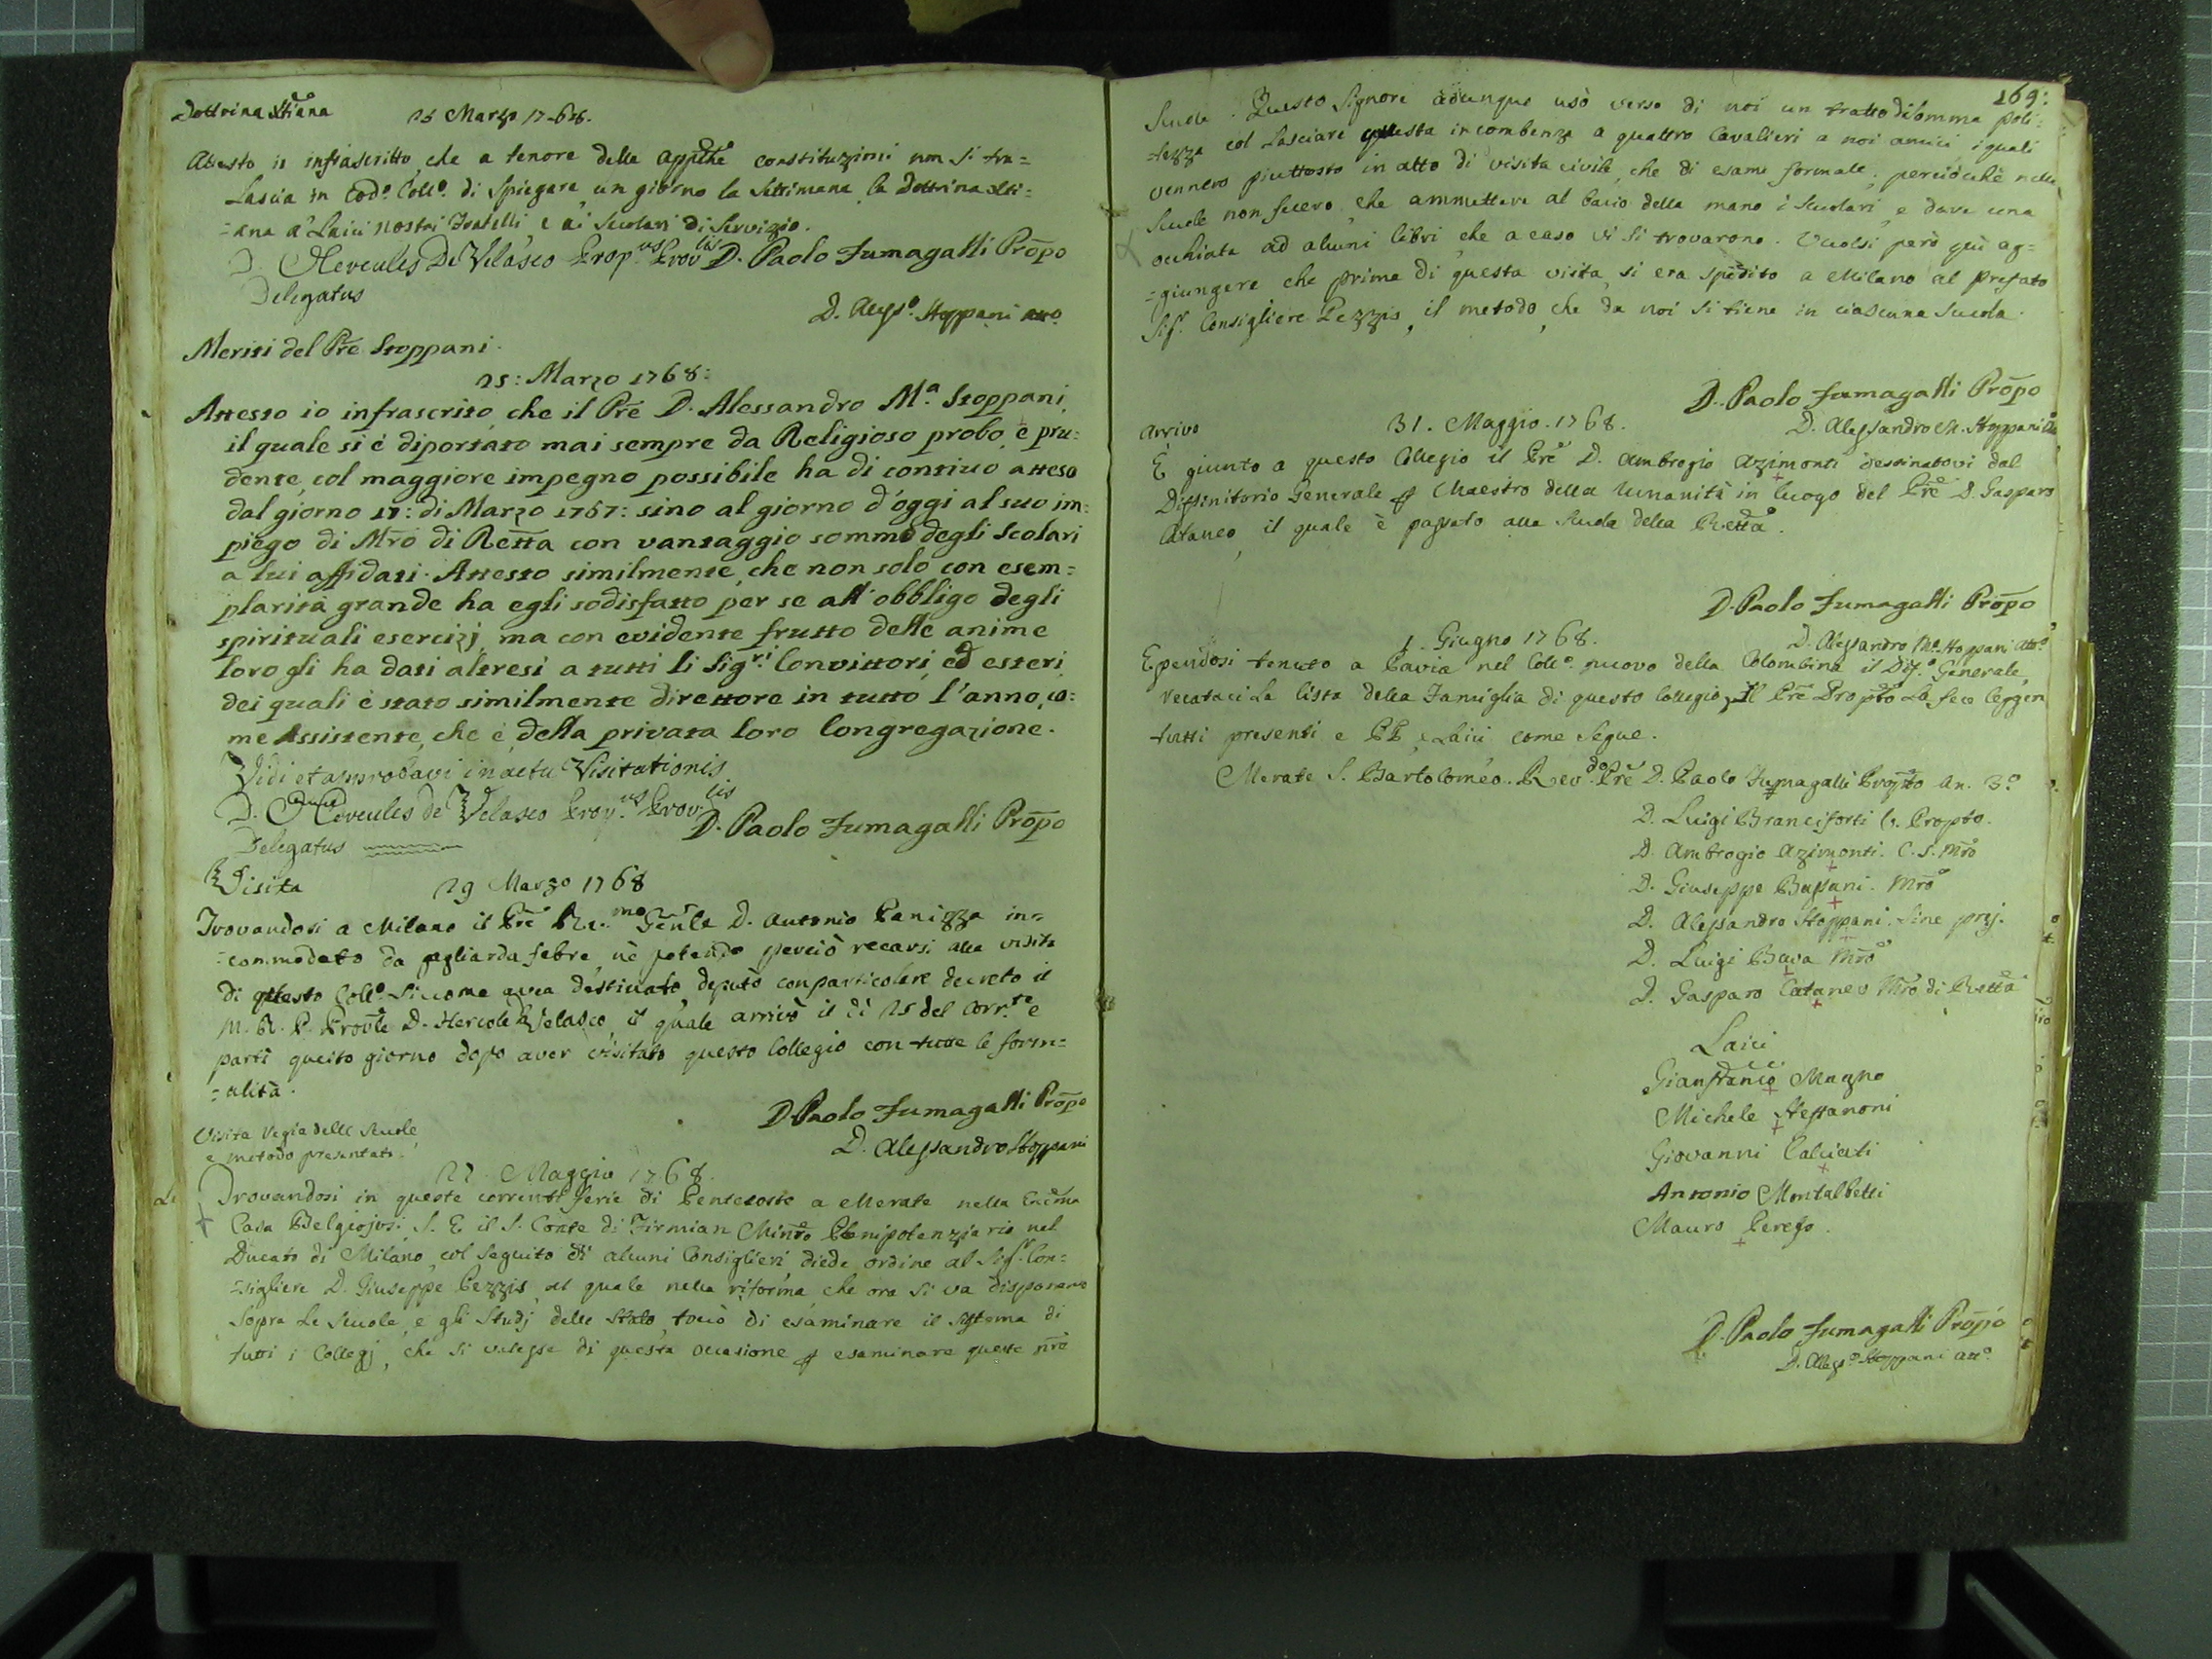 Dottrina Xtiana 25 Marzo 1768.
Attesto io infrascritto, che a tenore delle appthe constituzioni non si tra=
lascia in cod.o Coll.o di spiegare un giorno la settimana la Dottrina Xti=
=ana a' Laici nostri Fratelli, e ai Scolari di Servizio.
D. Hercules De Velasco Prop.us Prov.lis D. Paolo Fumagalli Propo
Delegatus
D. Aless.o Stoppani atto.
Meriti del Pre Stoppani.
25: Marzo 1768:
Attesto io infrascrito, che il Pre D. Alessandro M.a Stoppani,
il quale si é diportato mai sempre da Religioso probo, e pru:
dente, col maggiore impegno possibile ha di continuo atteso
dal giorno 17: di Marzo 1767: sino al giorno d'oggi al suo im:
piego di Mro di Retta con vantaggio sommo degli Scolari
a lui affidati. Attesto similmente, che non solo con esem=
plarità grande ha egli sodisfatto per se all'obbligo degli
spirituali esercizj, ma con evidente frutto delle anime
loro gli ha dati altresì a tutti li Sig.ri Convittori, ed esteri,
dei quali è stato similmente direttore in tutto l'anno, co:
me Assistente, che é, della privata loro Congregazione.
Vidi et approbavi in actu Visitationis
D. Hercules de Velasco Prop.us Prov.lis
D. Paolo Fumagalli Propo
Delegatus
Visita 29 Marzo 1768
Trovandosi a Milano il Pre Re.mo Genle D. Antonio Panizza in=
=commodato da gagliarda febre nè potendo perciò recarsi alla visita
di questo Coll.o siccome avea destinato, deputò con particolare decreto il
M. R. P. Provle D. Hercole Velasco, il quale arrivò il dì 25 del corr.te e
partì questo giorno dopo aver visitato questo Collegio con tutte le form=
=alità.
D. Paolo Fumagalli Propo
D. Alessandro Stoppani
Visita Regia delle Scuole,
e metodo presentato.
22. Maggio 1768.
Trovandosi in queste correnti ferie di Pentecoste a Merate nella
Casa Belgiojosi S. E il S. Conte di Firmian Minro Plenipotenziario nel
Ducato di Milano, col seguito di alcuni Consiglieri, diede ordine al Sig.r Con=
=sigliere D. Giuseppe Pezzis, al quale nella riforma, che ora si va disponendo
sopra le Scuole, e gli Studj dello Stato, toccò di esaminare il sistema di
tutti i Collegj, che si valesse di questa occasione p esaminare queste nre
169:
Scuole. Questo Signore adunque usò verso di noi un tratto di somma poli:
=tezza col lasciare questa incombenza a quattro Cavalieri a noi amici i quali
vennero piuttosto in atto di visita civile, che di esame formale; perciocchè nelle
Scuole non fecero, che ammettere al bacio della mano i Scolari, e dare una
occhiata ad alcuni libri, che a caso vi si trovarono. Vuolsi però quì ag=
=giungere che prima di questa visita, si era spedito a Milano al prefato
Sig.r Consigliere Pezzis, il metodo, che da noi si tiene in ciascuna Scuola.
D. Paolo Fumagalli Propo
D. Alessandro M. Stoppani
Arrivo 31. Maggio. 1768.
E giunto a questo Collegio il Pre D. Ambrogio Azimonti destinatovi dal
Diffinitorio Generale p Maestro della Umanità in luogo del Pre D. Gasparo
Cataneo, il quale è passato alla Scuola della Retta.
D. Paolo Fumagalli Propo
D. Alessandro M.a Stoppani Att.o
1. Giugno 1768.
Essendosi tenuto a Pavia nel Coll.o nuovo della Colombina il Dif.o Generale,
recataci la lista della Famiglia di questo Collegio, Il Pre Propto la fece leggere
tutti presenti e PP, e Laici come segue.
Merate S. Bartoloméo. Rev.do Pre D. Paolo Fumagalli Propto an. 3.o
D. Luigi Branciforti V. Propto.
D. Ambrogio Azimonti. C. S. Mro
D. Giuseppe Bassani. Mro
D. Alessandro Stoppani. Sine prej.
D. Luigi Bava Mro
D. Gasparo Cataneo Mro di Retta
Laici
Gianfranco Magno
Michele Steffanoni
Giovanni Calciati
Antonio Montalbetti
Mauro Perego.
D. Paolo Fumagalli Propo
D. Aless.o Stoppani att.o